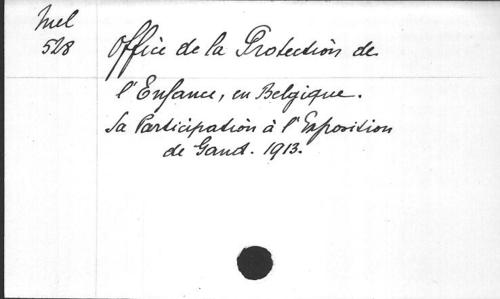 Mel
528
Office de la Protection de
l'Enfance, en Belgique.
Sa Participation à l'Exposition
de Gand. 1913.